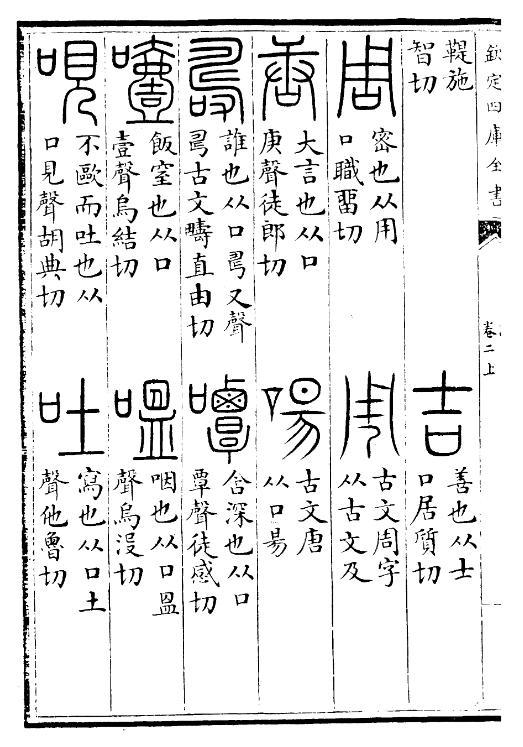 欽定四庫全書
卷二上
鞮施
智切
吉
善也从士
口居質切
周
密也从用
口職畱切
𠄗
古文周字
从古文及
唐
大言也从口
庚聲徒郎切
啺
古文唐
从口昜
𠷎
誰也从口𠃬又聲
𠃬古文疇直由切
嘾
含深也从口
覃聲徒感切
噎
飯窒也从口
壹聲烏結切
嗢
咽也从口𥁕
聲烏没切
哯
不歐而吐也从
口見聲胡典切
吐
寫也从口土
聲他魯切